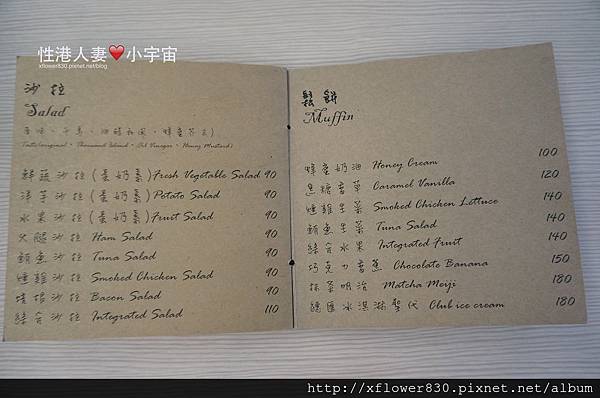 性港人妻❤小宇宙
xflower830.pixnet.net/blog
沙拉
Salad
(Taste:original、Thousand Island、Oil Vinegar、Honey Mustard)
鮮蔬沙拉(蛋奶素)Fresh Vegetable Salad 90
洋芋沙拉(蛋奶素)Potato Salad 90
水果沙拉(蛋奶素)Fruit Salad 90
火腿沙拉 Ham Salad 90
鮪魚沙拉 Tuna Salad 90
燻雞沙拉 Smoked Chicken Salad 90
培根沙拉 Bacon Salad 90
綜合沙拉 Integrated Salad 110
鬆餅
Muffin
蜂蜜奶油 Honey Cream 100
焦糖香草 Caramel Vanilla 120
燻雞生菜 Smoked Chicken Lettuce 140
鮪魚生菜 Tuna Salad 140
綜合水果 Integrated Fruit 140
巧克力香蕉 Chocolate Banana 150
抹茶明治 Matcha Meiji 180
總匯冰淇淋聖代 Club ice cream 180
http://xflower830.pixnet.net/album